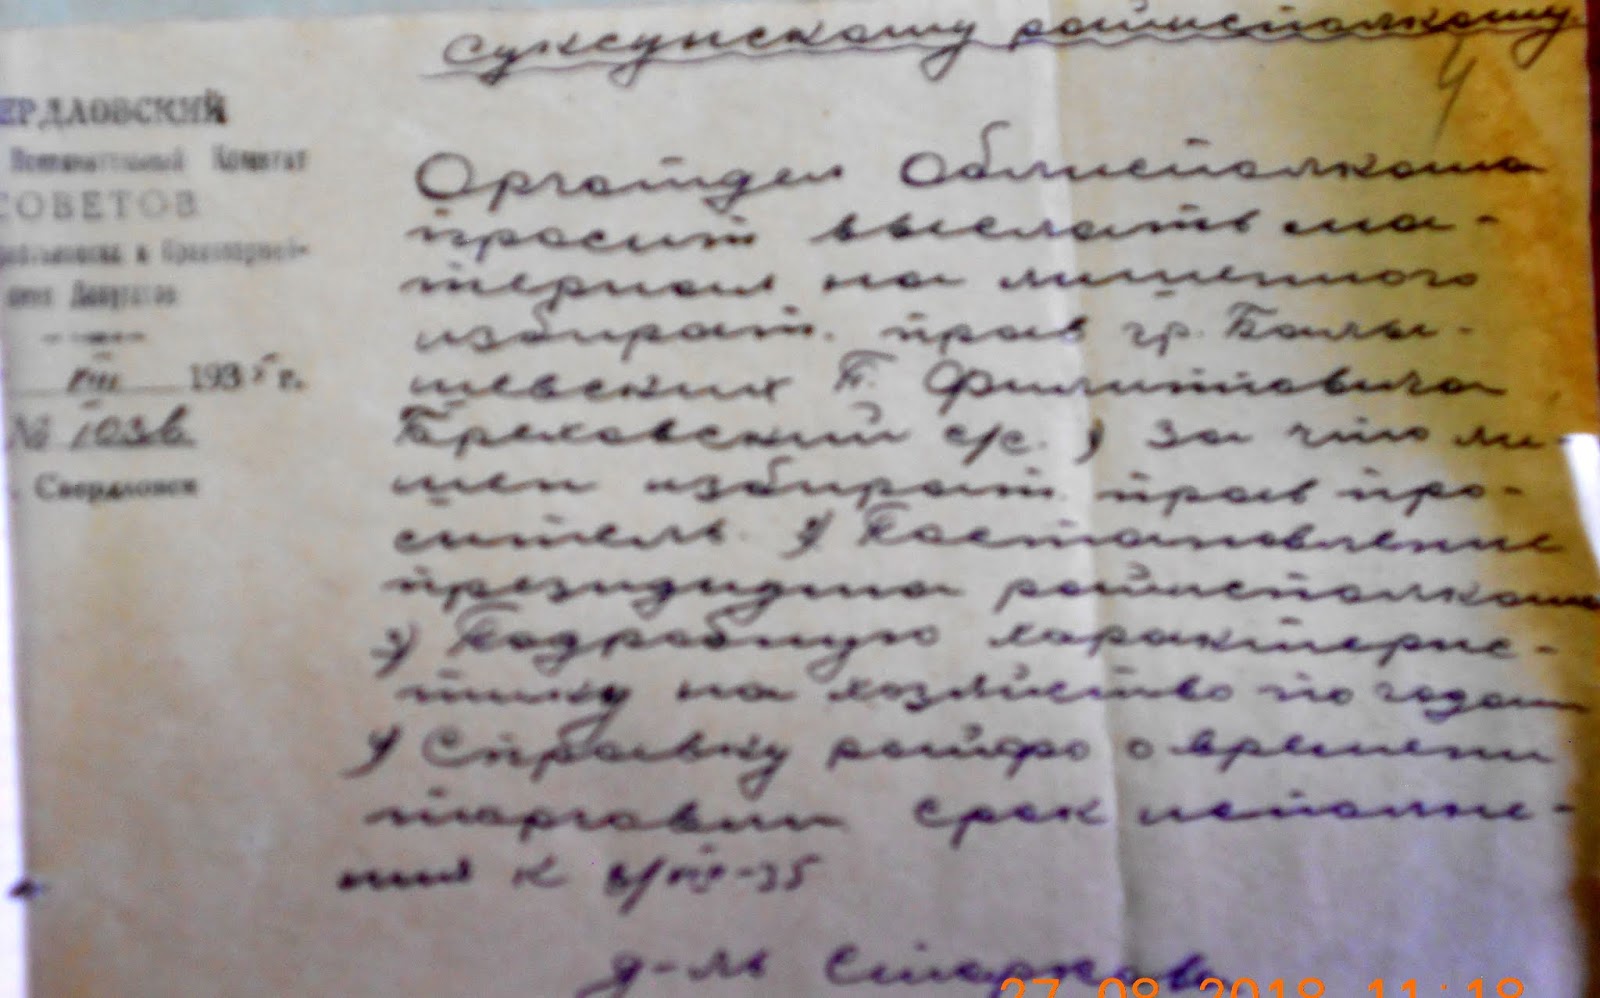 Суксунскому райисполкому.
4
ЕРДЛОВСКИЙ
Исполнительный Комитет
СОВЕТОВ
и Красноармей-
ских Депутатов
VIII 1935 г.
№ 103в
Свердловск
Орготдел Облисполкома
просит выслать ма-
териал на лишенного
избират. прав гр. Балы-
шевских П. Филипповича
Бреховский с/с. 1) За что ли-
шен избират. прав про-
ситель. 2) Постановление
президиума райисполкома
3) Подробную характерис-
тику на хозяйство по годам
4) Справку райфо о времени
торговли срок исполне-
ния к /VIII-35
д-ль Старков
27 08 2018 11:18